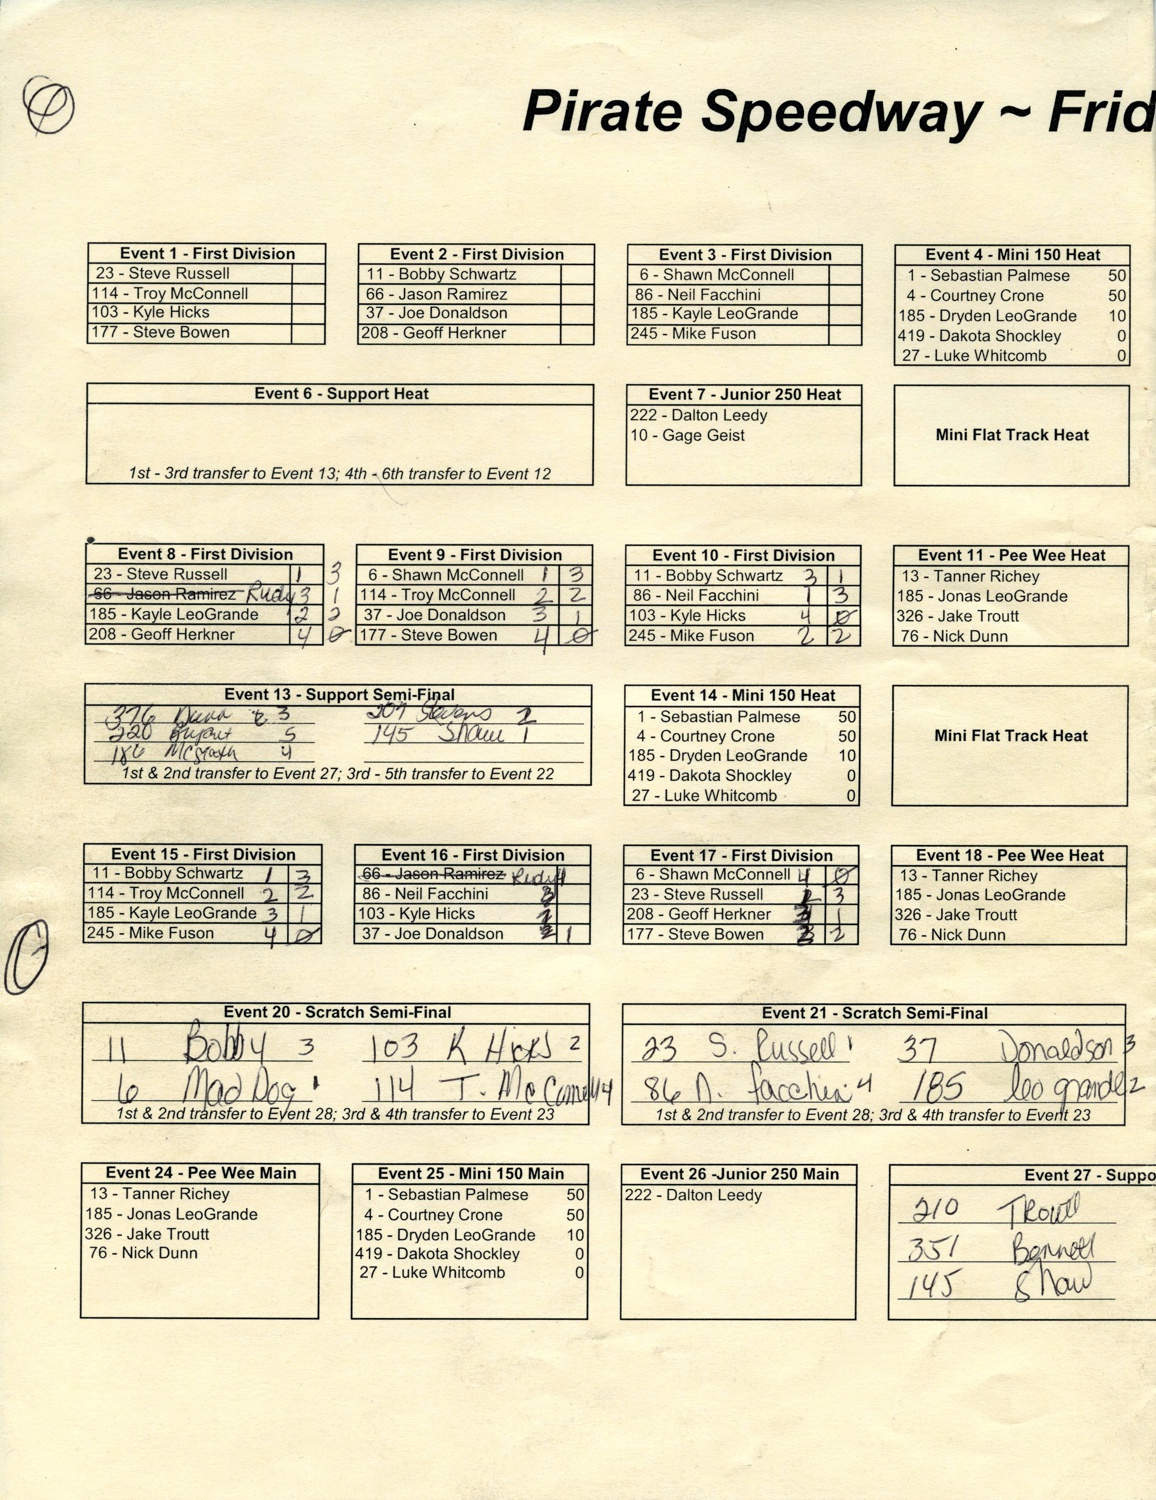 Pirate Speedway ~ Frid
Event 1 - First Division
23 - Steve Russell
114 - Troy McConnell
103 - Kyle Hicks
177 - Steve Bowen
Event 2 - First Division
11 - Bobby Schwartz
66 - Jason Ramirez
37 - Joe Donaldson
208 - Geoff Herkner
Event 3 - First Division
6 - Shawn McConnell
86 - Neil Facchini
185 - Kayle LeoGrande
245 - Mike Fuson
Event 4 - Mini 150 Heat
1 - Sebastian Palmese 50
4 - Courtney Crone 50
185 - Dryden LeoGrande 10
419 - Dakota Shockley 0
27 - Luke Whitcomb 0
Event 6 - Support Heat
1st - 3rd transfer to Event 13; 4th - 6th transfer to Event 12
Event 7 - Junior 250 Heat
222 - Dalton Leedy
10 - Gage Geist
Mini Flat Track Heat
Event 8 - First Division
23 - Steve Russell 1 3
66 - Jason Ramirez Rudy 3 1
185 - Kayle LeoGrande 2 2
208 - Geoff Herkner 4 0
Event 9 - First Division
6 - Shawn McConnell 1 3
114 - Troy McConnell 2 2
37 - Joe Donaldson 3 1
177 - Steve Bowen 4 0
Event 10 - First Division
11 - Bobby Schwartz 3 1
86 - Neil Facchini 1 3
103 - Kyle Hicks 4 0
245 - Mike Fuson 2 2
Event 11 - Pee Wee Heat
13 - Tanner Richey
185 - Jonas LeoGrande
326 - Jake Troutt
76 - Nick Dunn
Event 13 - Support Semi-Final
376 Dunn 3
220 5
186 4
Stevens 2
145 Shaw 1
1st & 2nd transfer to Event 27; 3rd - 5th transfer to Event 22
Event 14 - Mini 150 Heat
1 - Sebastian Palmese 50
4 - Courtney Crone 50
185 - Dryden LeoGrande 10
419 - Dakota Shockley 0
27 - Luke Whitcomb 0
Mini Flat Track Heat
Event 15 - First Division
11 - Bobby Schwartz 1 3
114 - Troy McConnell 2 2
185 - Kayle LeoGrande 3 1
245 - Mike Fuson 4 0
Event 16 - First Division
66 - Jason Ramirez Rudy
86 - Neil Facchini
103 - Kyle Hicks
37 - Joe Donaldson 1
Event 17 - First Division
6 - Shawn McConnell 4 0
23 - Steve Russell 3
208 - Geoff Herkner 1
177 - Steve Bowen 2
Event 18 - Pee Wee Heat
13 - Tanner Richey
185 - Jonas LeoGrande
326 - Jake Troutt
76 - Nick Dunn
Event 20 - Scratch Semi-Final
11 Bobby 3 103 K Hicks 2
6 Mad Dog 1 114 T. McConnell 4
1st & 2nd transfer to Event 28; 3rd & 4th transfer to Event 23
Event 21 - Scratch Semi-Final
23 S. Russell 1 37 Donaldson 3
86 N. facchini 4 185 leo grande 2
1st & 2nd transfer to Event 28; 3rd & 4th transfer to Event 23
Event 24 - Pee Wee Main
13 - Tanner Richey
185 - Jonas LeoGrande
326 - Jake Troutt
76 - Nick Dunn
Event 25 -Mini 150 Main
1 - Sebastian Palmese 50
4 - Courtney Crone 50
185 - Dryden LeoGrande 10
419 - Dakota Shockley 0
27 - Luke Whitcomb 0
Event 26 -Junior 250 Main
222 - Dalton Leedy
Event 27 - Suppo
210
351 Bennett
145 Shaw